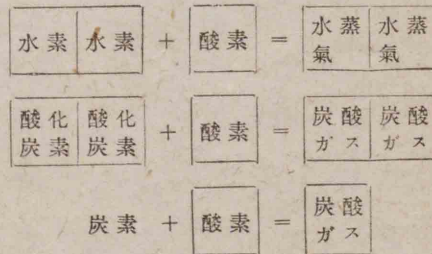 水素 水素 + 酸素 = 水蒸氣 水蒸氣
酸化炭素 酸化炭素 + 酸素 = 炭酸ガス 炭酸ガス
炭素 + 酸素 = 炭酸ガス